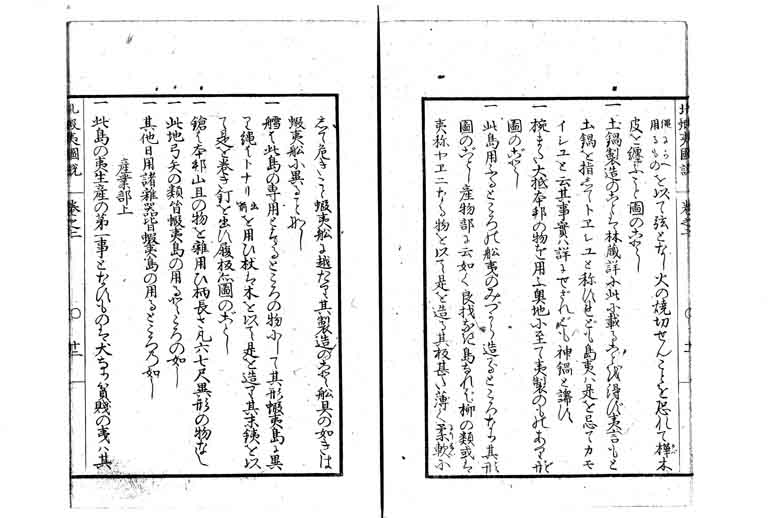 北蝦夷圖説 巻之二 ○ 十二
用るものを以て弦となし火の焼切せんことを恐れて樺木
皮を纏ふこと圖のごとし
一 土鍋製造のことは林藏詳に此に載することを得ず夷言もと
土鍋を指してトヱレユと称ひども島夷は是を忌てカモ
イレユと云其事實は詳にせざれども神鍋と譯ひ
一 椀また大抵本邦の物を用ふ奥地に至て夷製のものあり形
圖のごとし
一 此島用ふるところの船夷のみづから造るところなり其形
圖のごとし産物部に云如く良材なき島なれば柳の類或は
夷称ヤヱニなる物を以て是を造る其板甚た薄く柔軟に
して危きこと蝦夷船に越たり其製造のこと船具の如きは
蝦夷船に異ることなし
一 艝は此島の専用となるところの物にして其形蝦夷島に異
て縄はトナリを用ひ杖は木を以て是を造り其末鐵を以
て是を巻き釘を出ひ圖のごとし
一 鎗は本邦山丹の物を雜用ひ柄長さ凡六七尺異形の物なし
一 此地弓矢の類皆蝦夷島の用るところの如し
一 其他日用諸雜器皆蝦夷島の用るところの如し
産業部上
一 此島の夷生産の第一事となひものは犬なり貧賤の夷は其
北蝦夷圖説 巻之二 ○ 十三